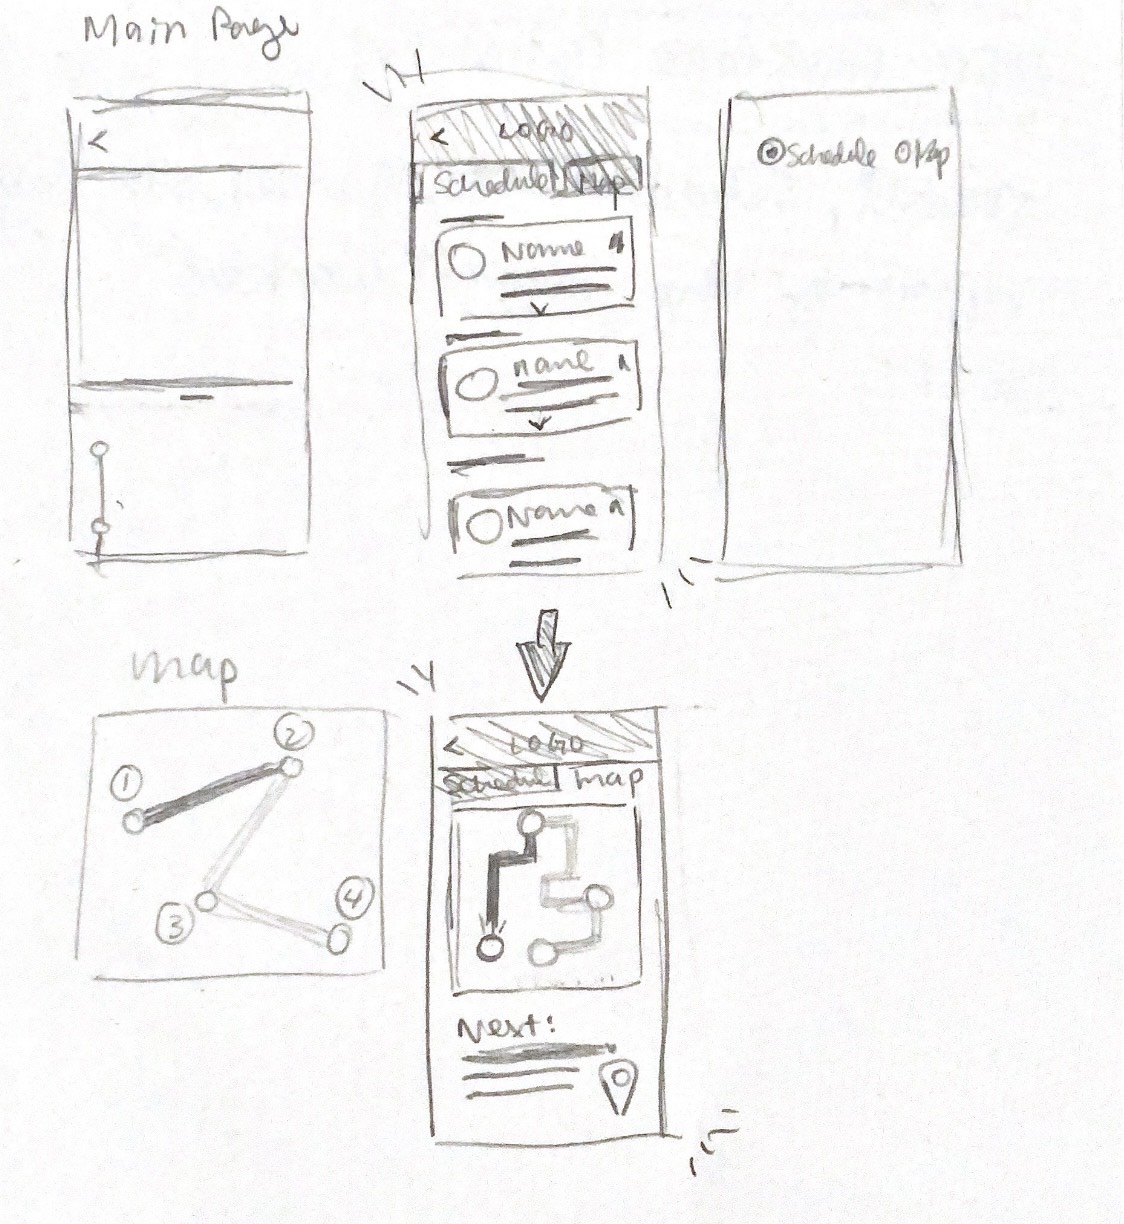 Main Page
<
< LOGO
Schedule Map
Name
name
Name
Schedule Map
map
1
2
3
4
< LOGO
Schedule map
Next: